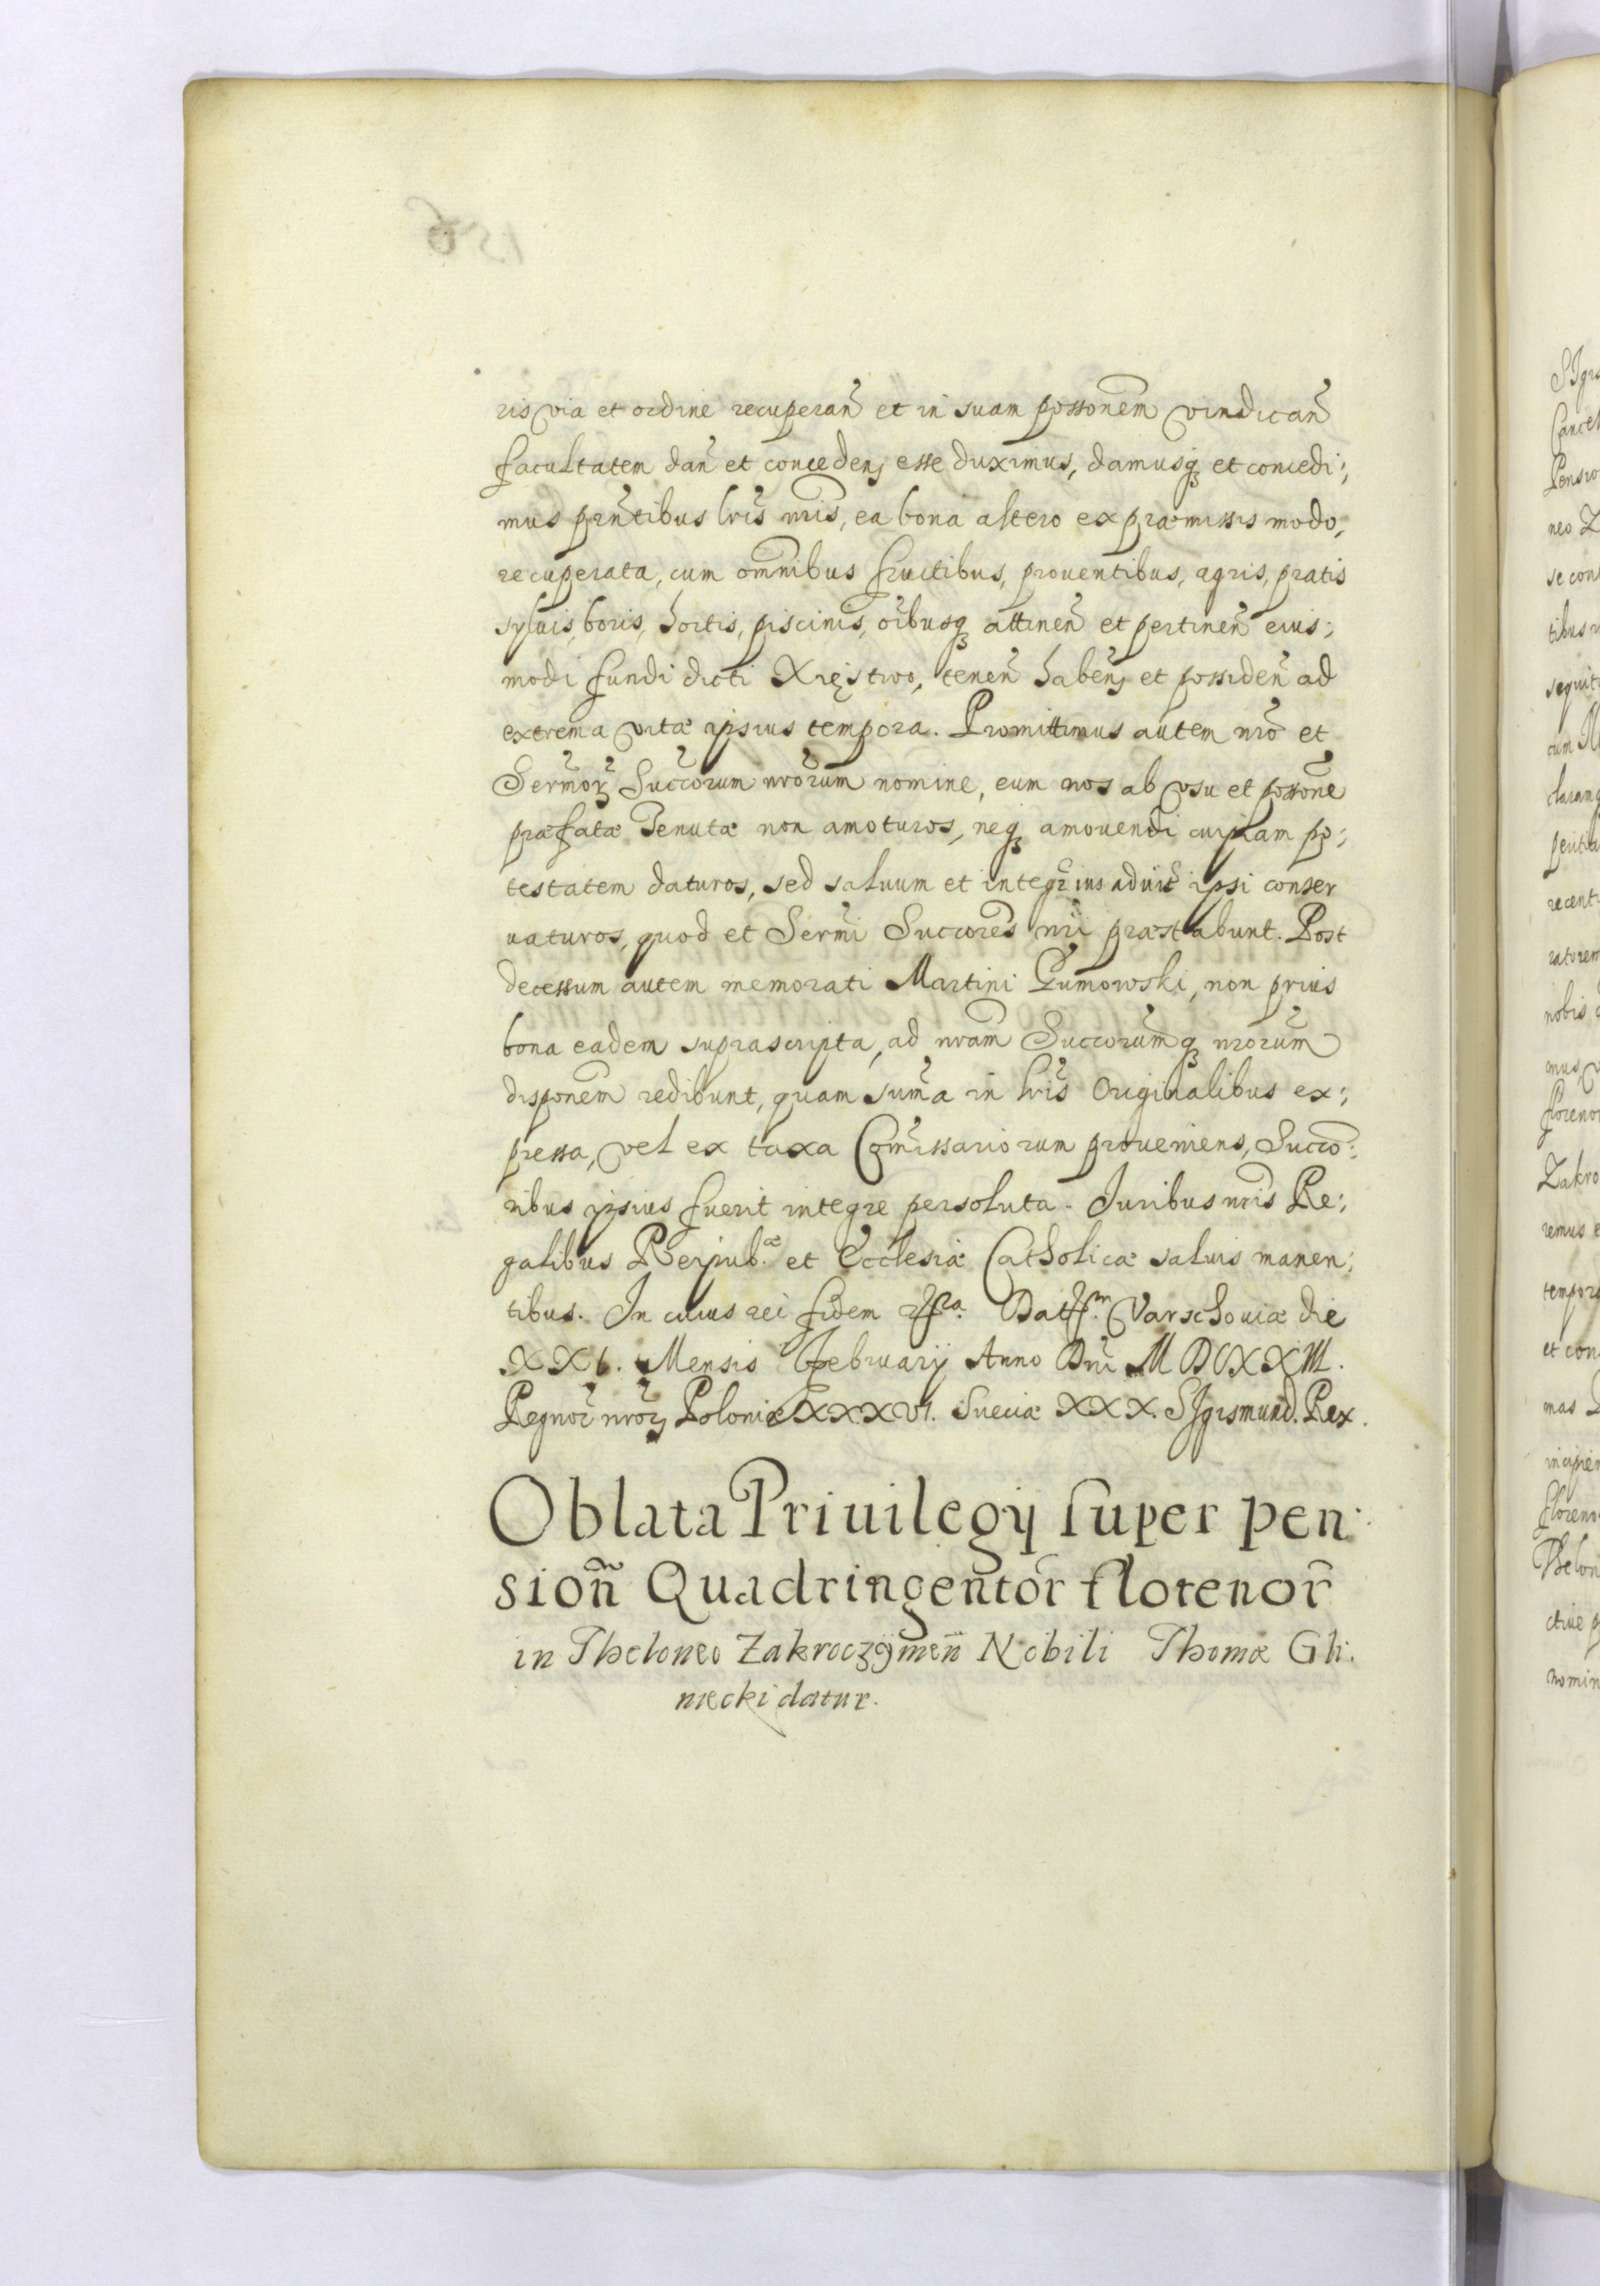 ris via et ordine recuperan̄ et in suam possonem vindican̄
facultatem dan̄ et conceden̄ esse duximus, damusq́ꝫ et concedi:,
mus prn̄tibus lrīs nrīs, ea bona altero ex præmissis modo,
recuperata, cum omnibus fructibus, prouentibus, agris, pratis
syluis, boris, hortis, piscinis, oībusqꝫ attinen̄ et pertinen̄ eius:,
modi fundi dicti Xięstwo, tenen̄ haben̄ et possiden̄ ad
extrema vitæ ipsius tempora. Promittimus autem nrō et
Sermōrꝫ Succorum nrōrum nomine, eum nos ab vsu et possone
præfatæ Tenutæ non amoturos, neqꝫ amouendi cuipiam po:,
testatem daturos, sed saluum et integr̄ ius aduit̄ ipsi conser
uaturos, quod et Sermī Succores nrī præstabunt. Post
decessum autem memorati Martini Gumowski, non prius
bona eadem suprascripta, ad nram Succorumqꝫ nrorum
disponem redibunt, quam sum̄a in lrīs Originalibus ex:,
pressa, vel ex taxa Com̄issariorum proueniens, Succo:,
ribus ipsius fuerit integre persoluta. Juribus nrīs Re:,
galibus Reipub.æ et Ecclesiæ Catholicæ saluis manen:,
tibus. In cuius rei fidem Datt.m Varschouiæ die
XXI. Mensis Februarij Anno Dnī M DCXXIII.
Regnor̄ nrorꝫ Poloniæ XXXVI. Sueciæ XXX. SIgismund. Rex.
Oblata Priuilegij super pen:
sion̄ Quadringentor̄ florenor̄
in Theloneo Zakroczÿmen̄ Nobili Thomæ Gli:
niecki datur.